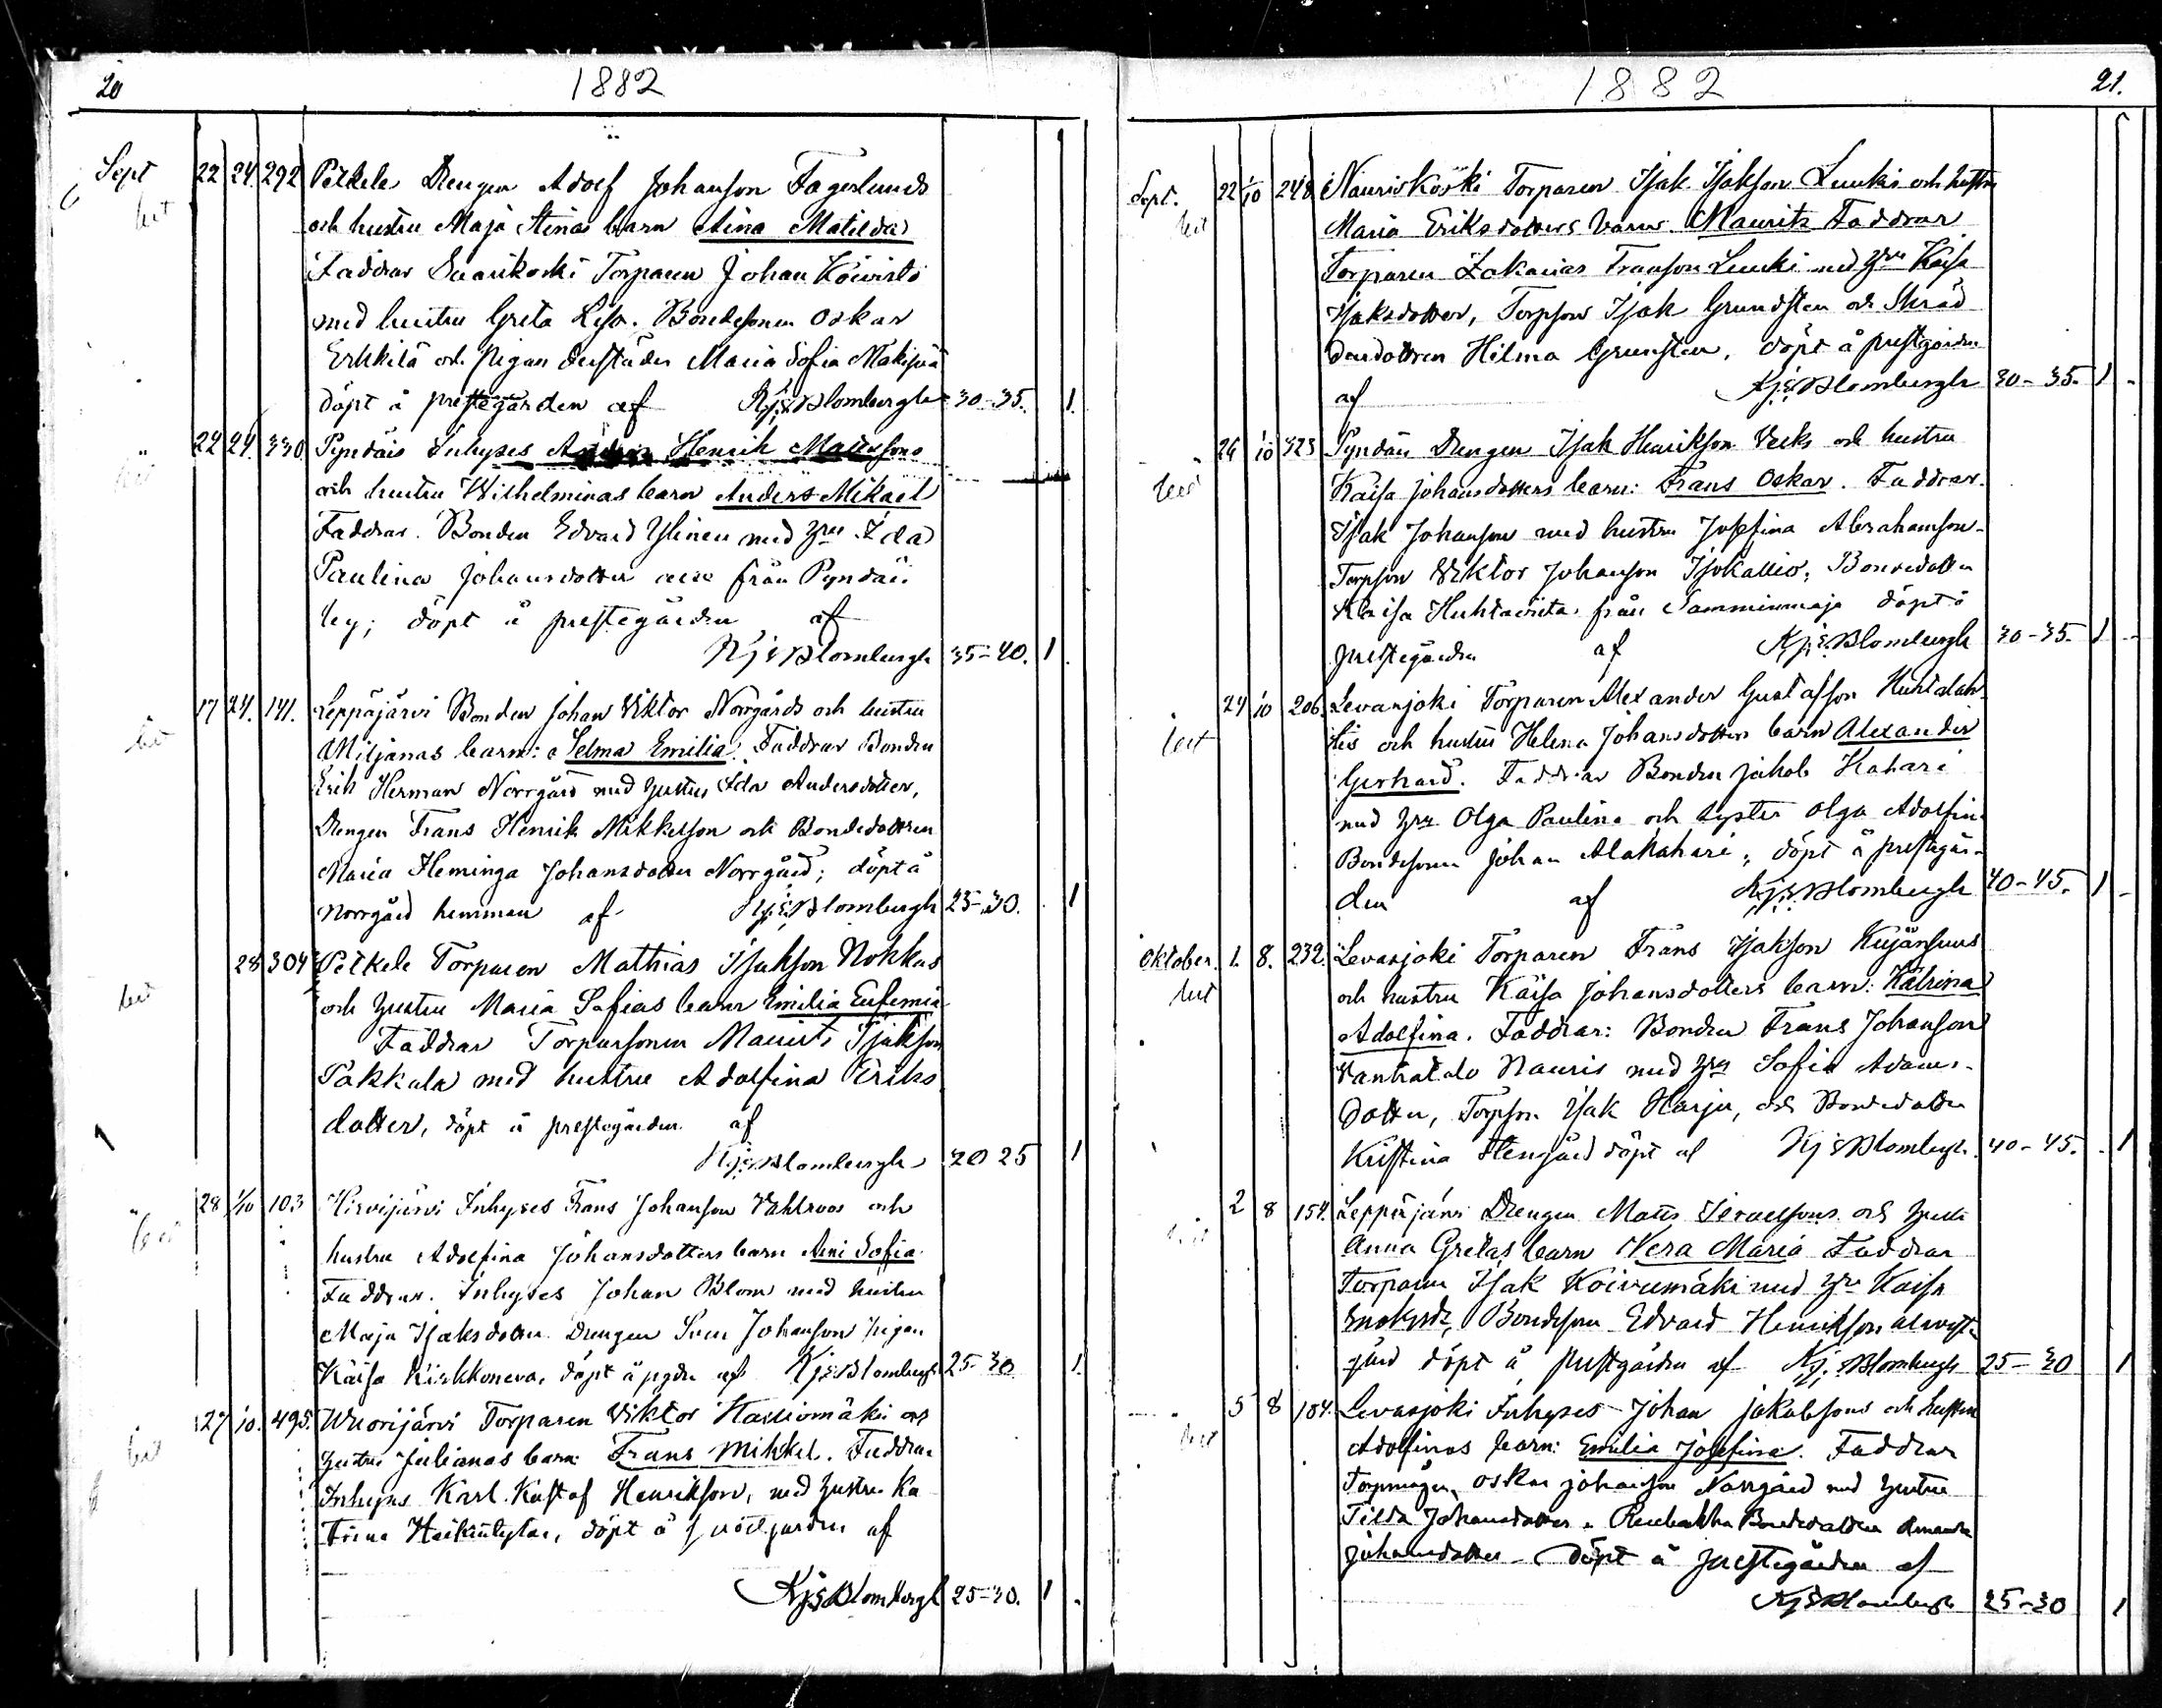 20 1882
Sept 22 24. 292 Petkele Drengen Adolf Johanson Fagerlunds
och hustru Maja Stinas barn Aina Matilda
Faddrar Torparen Johan Koivisto
med hustru Greta Lisa. Bondesonen Oskar
Erkkilä och pigan derstädes Maria Sofia Mäkipää
döpt å prestegården af KjEBlombergh 30-35. 1.
22 24. 330 Pyndäis Inhyses Henrik Mattssons
och hustru Wilhelminas barn Anders Mikael
Faddrar. Bonden Edvard Ylinen med Ida
Paulina Johansdotter från Pyndäis
by; döpt å prestegården af
KjEBlombergh 35-40. 1.
17 24. 141. Leppäjärvi Bonden Johan Viktor Norrgårds och hustru
Miljanas barn: Selma Emilia. Faddrar Bonden
Erik Herman Norrgård med hustru Ida Andersdotter,
Drengen Frans Henrik Mikkelson och Bondedottren
Maria Heminga Johansdotter Norrgård; döpt å
Norrgård hemman af KjEBlombergh 25-30. 1
28 304 Petkele Torparen Mathias Isakson Nokkas
och hustru Maria Sofias barn Emilia Eufemia
Faddrar Torparsonen Maurits Isakson
Pakkala med hustru Adolfina Eriks
dotter, döpt å prestegården af
KjEBlombergh 20 25 1
28 1/10 103 Hirvijärvi Inhyses Frans Johanson Vahlroos och
hustru Adolfina Johansdotters barn Aini Sofia
Faddrar. Inhyses Johan Blom med hustru
Maja Isaksdotter Drengen Johanson pigan
Kaisa Kirkkoneva, döpt å pgdn af KjEBlombergh 25-30 1.
27 10. 495. Wuorijärvi Torparen Viktor Harriomäkis och
hustru Julianas barn: Frans Mikkel. Faddrar
Inhyses Karl Kustaf Henrikson, med hustru Ka
trina döpt å prestgården af
KjEBlombergh 25-30. 1.
1882 21.
Sept. 22 1/10 248 Nauriskoski Torparen Isak Isakson Luukis och hustru
Maria Eriksdotters barn Maurits Faddrar
Torparen Zakarias Franson Luuki med Kaisa
Isaksdotter, Torpson Isak Grundsten och Skräd
dardottren Hilma Grunsten, döpt å prestgården
af KjEBlombergh 30-35. 1
24 10 323 Pyndäis Drengen Isak Henrikson Veeks och hustru
Kaisa Johansdotters barn: Frans Oskar. Faddrar.
Isak Johanson med hustru Josefina Abrahamson
Torpson Viktor Johanson Isokallio, Bondedotter
Kaisa från Samminmaja döpt å
prestegården af KjEBlombergh 30-35. 1
24 10 206. Levasjoki Torparen Alexander Gustafson Huhtalah
tis och hustru Helena Johansdotters barn Alexander
Gerhard. Faddrar Bonden Jakob Kahari
med Olga Paulina och syster Olga Adolfina
Bondesonen Johan Alakahari; döpt å prestegår-
den af KjEBlombergh 40-45. 1
Oktober. 1. 8. 232. Levasjoki Torparen Frans Isakson Kujänsuus
och hustru Kaisa Johansdotters barn: Katrina
Adolfina. Faddrar: Bonden Frans Johanson
Vanhatalo Nauris med Sofia Adams-
dotter, Torpson Isak Harju, och Bondedotter
Kristina Stengård döpt af KjEBlombergh 40-45. 1
2 8 154. Leppäjärvi Drengen Matts Israelsons och hustru
Anna Gretas barn Vera Maria Faddrar
Torparen Isak Koivumäki med Kaisa
Bondeson Edvard Henrikson
gård döpt å prestgården af KjEBlombergh 25-30 1
5 8 184. Levasjoki Inhyses Johan Jakobsons och hustru
Adolfinas barn: Emilia Josefina. Faddrar
Oskar Johanson Norrgård med hustru
Tilda Johansdotter. Bondedotter Amanda
Johansdotter döpt å prestegården af
KjEBlombergh 25-30 1